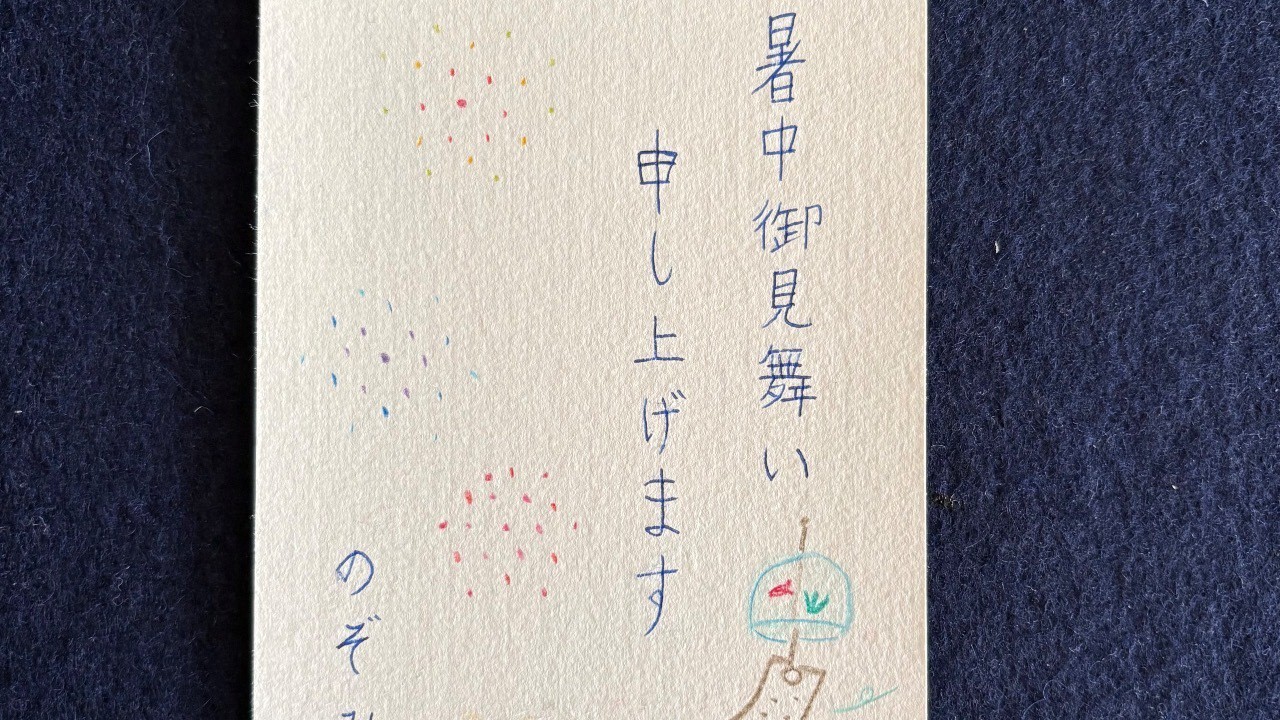 暑中御見舞い
申し上げます
のぞ